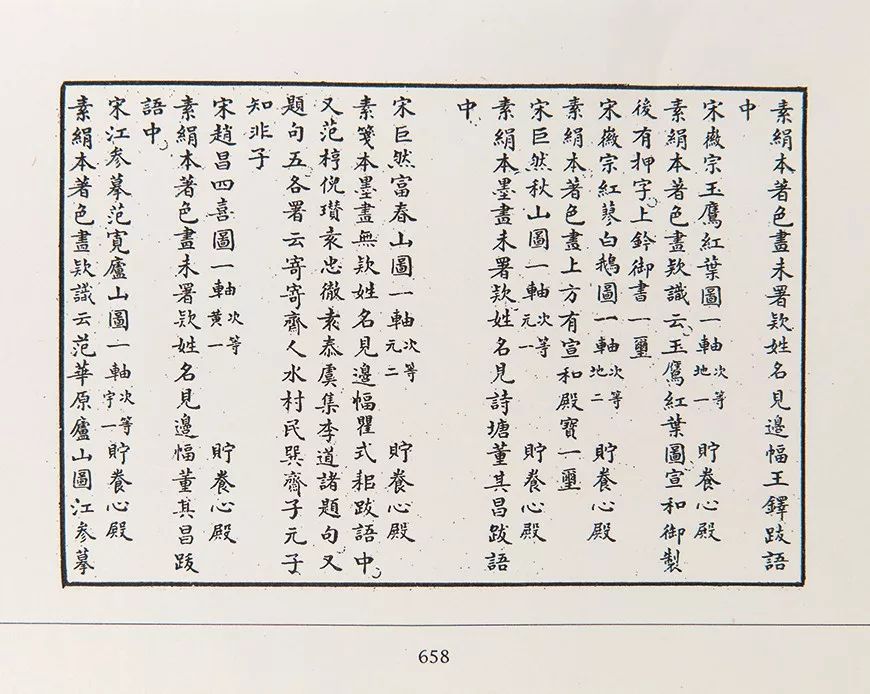 素絹本著色畫未署欵姓名見邊幅王鐸跋語
中
宋徽宗玉鷹紅葉圖一軸次等地一 貯養心殿
素絹本著色畫欵識云玉鷹紅葉圖宣和御製
後有押字上鈐御書一璽
宋徽宗紅蓼白鵝圖一軸次等地二 貯養心殿
素絹本著色畫上方有宣和殿寶一璽
宋巨然秋山圖一軸次等元一 貯養心殿
素絹本墨畫未署欵姓名見詩塘董其昌跋語
中
宋巨然富春山圖一軸次等元二 貯養心殿
素箋本墨畫無欵姓名見邊幅瞿式耜跋語中
又范梈倪瓚袁忠徹袁泰虞集李道諸題句又
題句五各署云寄寄齋人水村民巽齋子元子
知非子
宋趙昌四喜圖一軸次等黄一 貯養心殿
素絹本著色畫未署欵姓名見邊幅董其昌跋
語中
宋江參摹范寛廬山圖一軸次等宇一 貯養心殿
素絹本著色畫欵識云范華原廬山圖江參摹
658